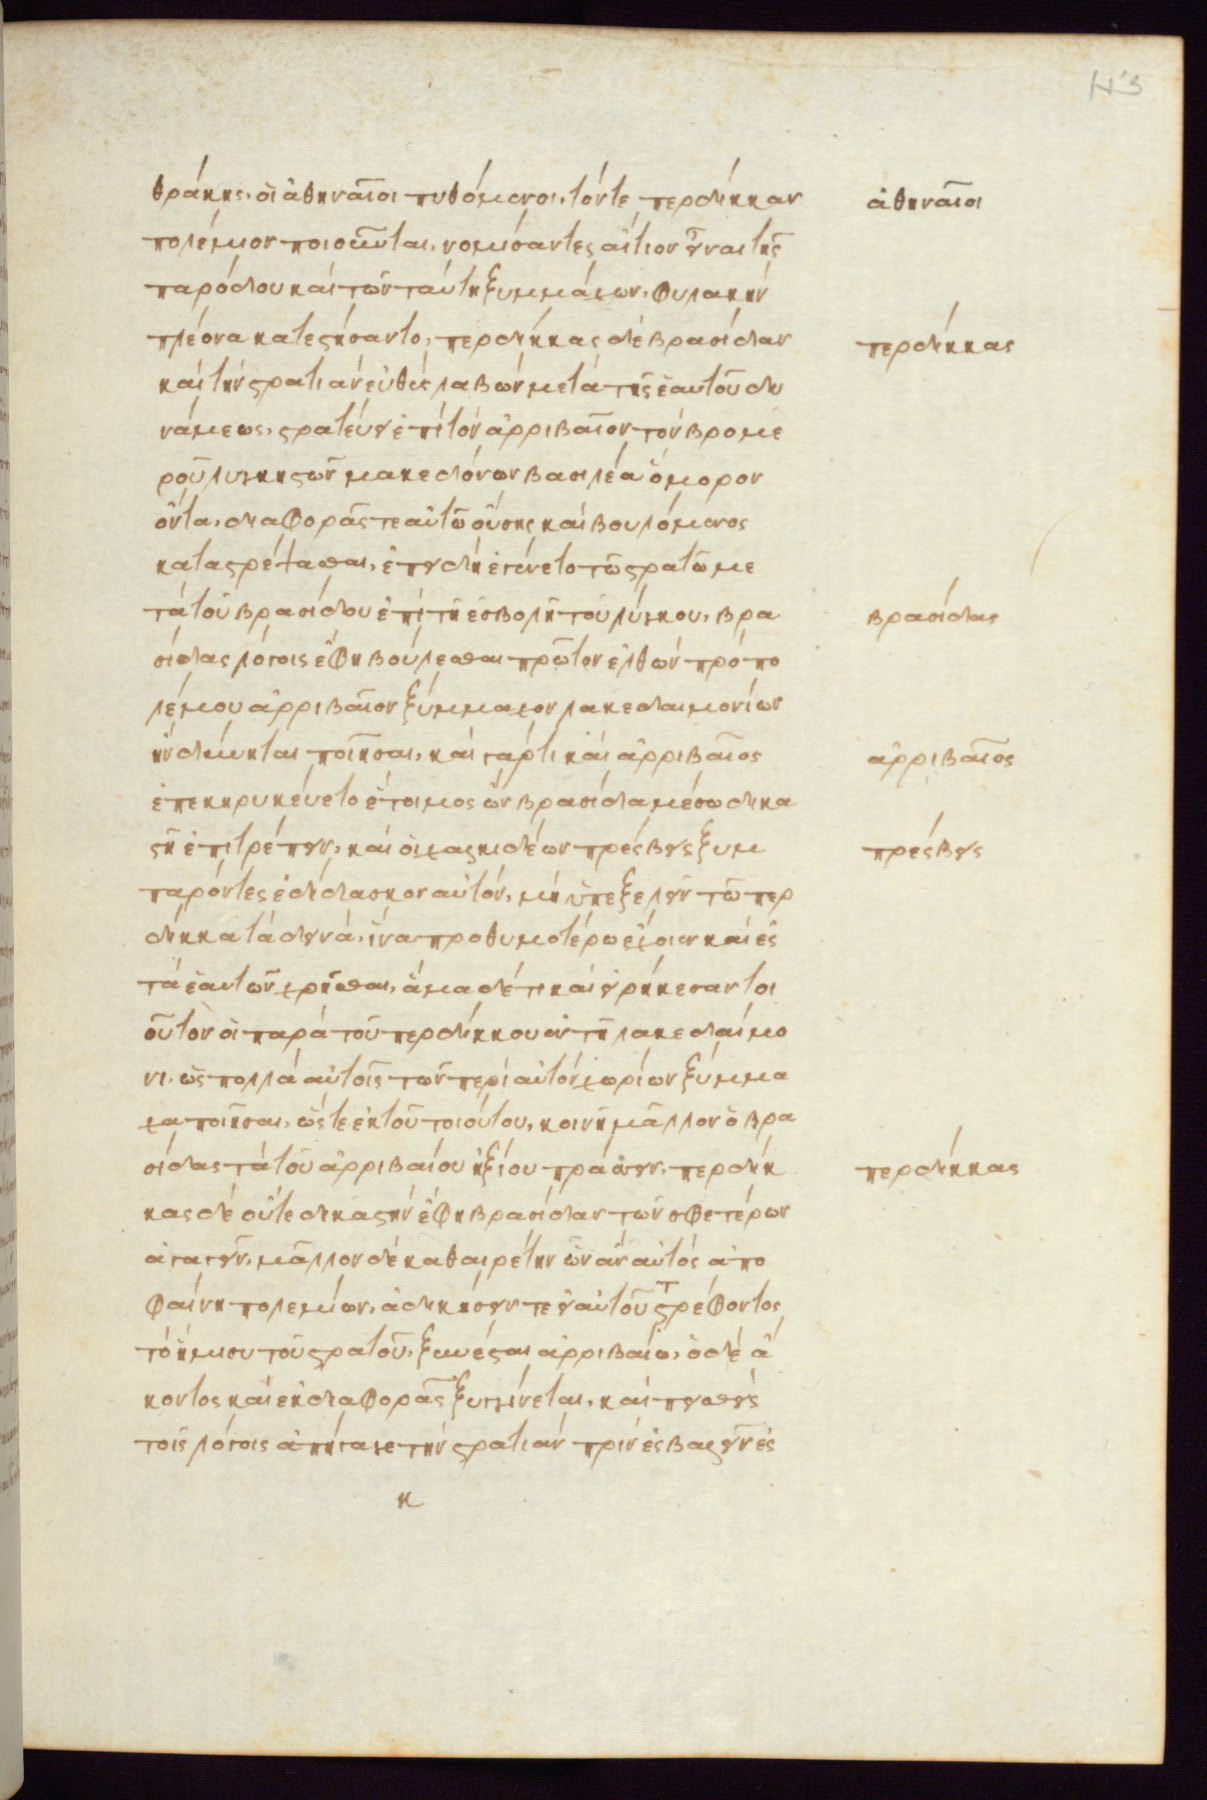 θράκης. οἱ ἀθηναῖοι πυθόμενοι, τόν τε περδίκκαν
πολέμιον ποιοῦνται, νομίσαντες αἴτιον εἶναι τῆς
παρόδου καὶ τῶν ταύτη ξυμμάχων, φυλακὴν
πλέονα κατεστήσαντο, περδίκκας δὲ βρασίδαν
καὶ τὴν στρατιὰν εὐθὺς λαβὼν μετὰ τῆς ἑαυτοῦ δυ
νάμεως, στρατεύει ἐπὶ τὸν ἀρριβαῖον τὸν βρομε
ροῦ λυγκηστῶν μακεδόνων βασιλέα ὅμορον
ὄντα, διαφορᾶς τε αὐτῶ οὔσης καὶ βουλόμενος
καταστρέψασθαι, ἐπειδὴ ἐγένετο τῶ στρατῶ με
τὰ τοῦ βρασίδου ἐπὶ τῆ ἐσβολῆ τοῦ λύγκου, βρα
σίδας λόγοις ἔφη βούλεσθαι πρῶτον ἐλθὼν πρὸ πο
λέμου ἀρριβαῖον ξύμμαχον λακεδαιμονίων
ἢν δύνηται ποιῆσαι, καὶ γάρ τι καὶ ἀρριβαῖος
ἐπεκηρυκεύετο ἑτοῖμος ὢν βρασίδα μέσω δικα
στῆ ἐπιτρέπειν, καὶ οἱ χαλκιδέων πρέσβεις ξυμ
παρόντες ἐδίδασκον αὐτὸν, μὴ ὑπεξελεῖν τῶ περ
δίκκα τὰ δεινὰ, ἵνα προθυμοτέρω ἔχοιεν καὶ ἐς
τὰ ἑαυτῶν χρῆσθαι, ἅμα δέ τι καὶ εἰρήκεσαν τοι
οῦτον οἱ παρὰ τοῦ περδίκκου ἐν τῆ λακεδαίμο
νι. ὡς πολλὰ αὐτοῖς τῶν περὶ αὐτὸν χωρίων ξύμμα
χα ποιῆσαι, ὥστε ἐκ τοῦ τοιούτου, κοινῆ μᾶλλον ὁ βρα
σίδας τὰ τοῦ ἀρριβαίου ἠξίου πράσσειν. περδίκ
κας δὲ οὔτε δικαστὴν ἔφη βρασίδαν τῶν σφετέρων
ἀγαγεῖν. μᾶλλον δὲ καθαιρέτην ὧν ἂν αὐτὸς ἀπο
φαίνη πολεμίων. ἀδικήσειν τε εἰ αὐτοῦ στρέφοντος
τὸ ἥμισυ τοῦ στρατοῦ. ξυνέσται ἀρριβαίω. ὁ δὲ ἄ
κοντος καὶ ἐκ διαφορᾶς ξυγγίνεται. καὶ πεισθεὶς
τοῖς λόγοις ἀπήγαγε τὴν στρατιὰν πρὶν ἐσβαλεῖν ἐς
κ
ἀθηναῖοι
περδίκκας
βρασίδας
ἀρριβαῖος
πρέσβεις
περδίκκας